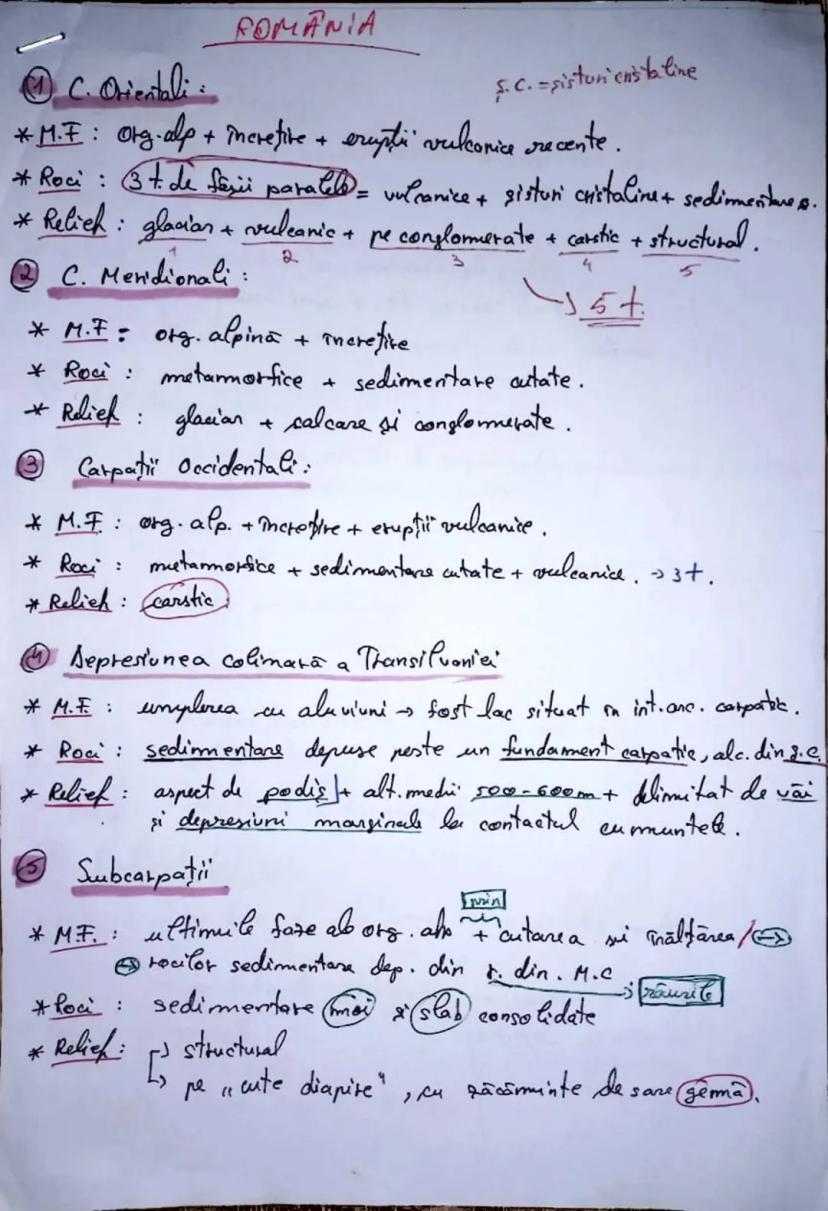 ROMÂNIA
ș.c. = șisturi cristaline
① C. Orientali :
* M.F : org. alp + încrețire + erupții vulcanice recente.
* Roci : 3 t. de fâșii paralele = vulcanice + șisturi cristaline + sedimentare
* Relief : glaciar + vulcanic + pe conglomerate + carstic + structural.
1 2 3 4 5
→ 5 t.
② C. Meridionali :
* M.F = org. alpină + încrețire
* Roci : metamorfice + sedimentare cutate.
* Relief : glaciar + calcare și conglomerate.
③ Carpații Occidentali :
* M.F : org. alp. + încrețire + erupții vulcanice.
* Roci : metamorfice + sedimentare cutate + vulcanice. → 3 t.
* Relief : carstic
④ Depresiunea colinară a Transilvaniei
* M.F : umplerea cu aluviuni → fost lac situat în int. arc. carpatic.
* Roci : sedimentare depuse peste un fundament carpatic, alc. din ș.c.
* Relief : aspect de podiș + alt. medii 500-600m + delimitat de văi
și depresiuni marginale la contactul cu muntele.
⑤ Subcarpații
prin
* M.F. : ultimile faze ale org. alp + cutarea și înălțarea / →
→ rocilor sedimentare dep. din r. din. M.C → râurile
* Roci : sedimentare moi și slab consolidate
* Relief : → structural
→ pe „cute diapire", cu zăcăminte de sare gemă.